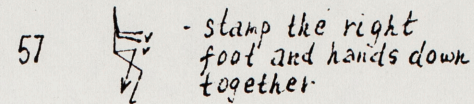 57 - stamp the right
foot and hands down
together.